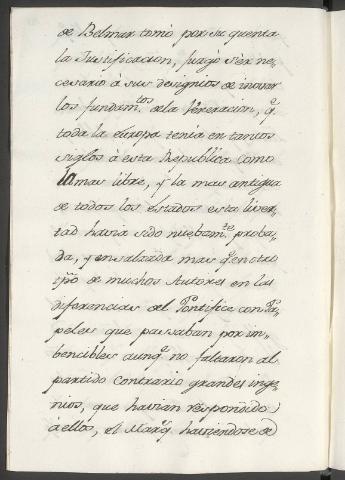 de Belmar tomò por su quenta
la Justificacion, juzgò sér ne,
cesario à sus designios de inovar
los fundam.tos de la Veneracion, q.e
toda la europa tenia en tantos
siglos à esta Republica como
la mas libre, y la mas antigua
de todos los estados esta liver,
tad havia sido nuebam.te proba,
da, y ensalzada mas q.e en otro
tpo de muchos Autores en las
diferencias del Pontifice con Pa,
peles que passaban por im,
bencibles aunq.e no faltaron al
partido contrario grandes inge,
nios, que havian respondido
à ellos, el Marq.s haviendose de